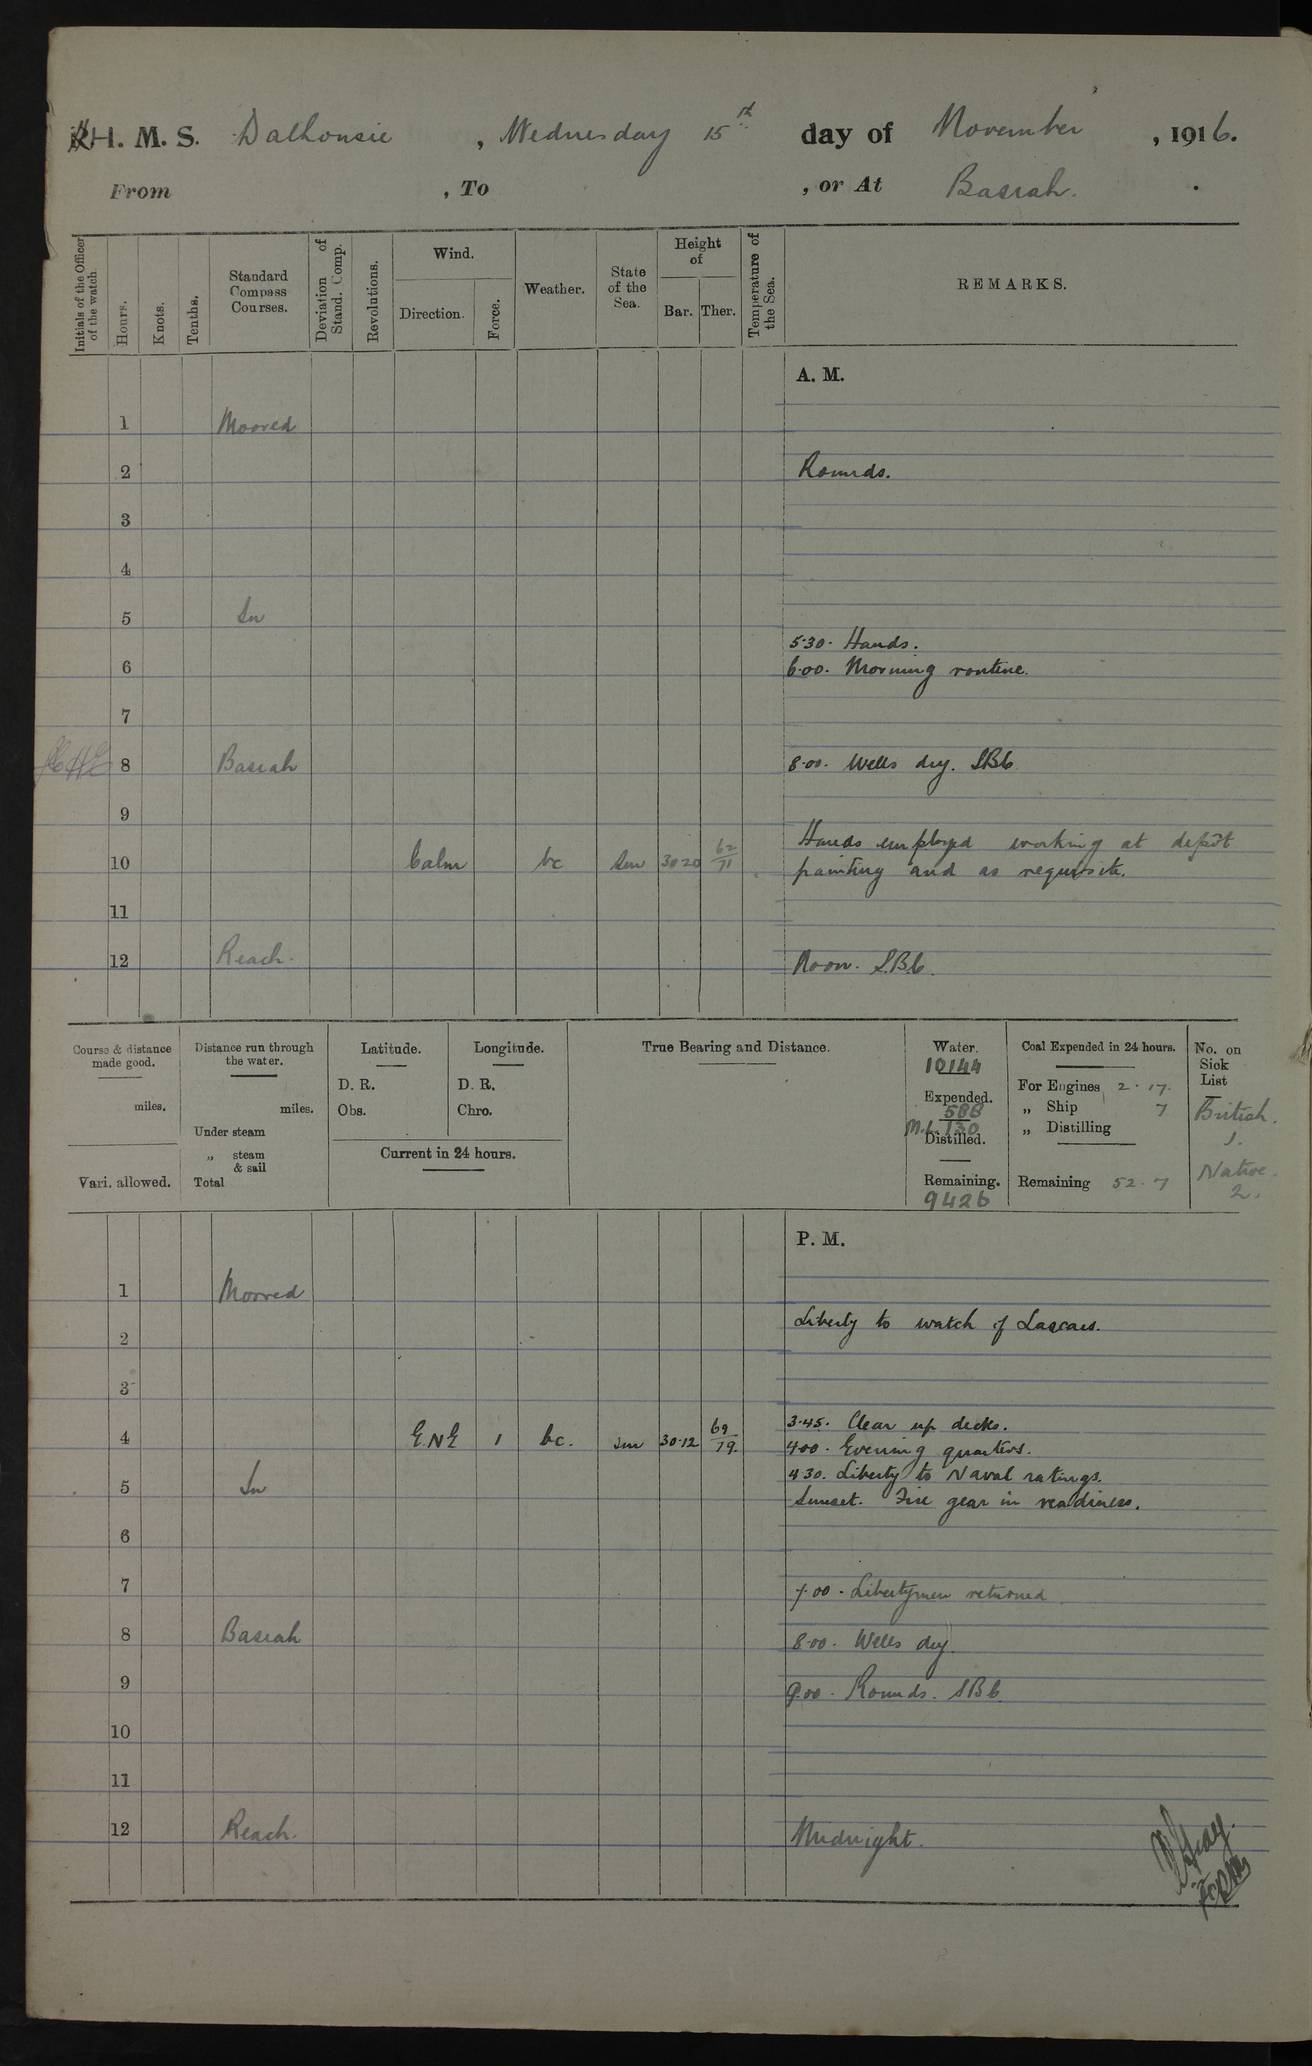 H. M. S. Dalhousie, Wednesday 15th day of November, 1916.
From , To , or At Basrah.
Initials of the Officer of the watch. Hours. Knots. Tenths. Standard Compass Courses. Deviation of Stand. Comp. Revolutions. Wind. Direction. Force. Weather. State of the Sea. Height of Bar. Ther. Temperature of the Sea. REMARKS.
A. M.
1 Moored
2 Rounds.
3
4
5 In
5.30. Hands.
6 6.00. Morning routine.
7
8 Basrah 8.00. Wells dry. SB6
9
Hands employed working at depôt
10 Calm bc Sm 30.20 62/71 painting and as requisite.
11
12 Reach. Noon. S.B.6.
Course & distance made good. miles. Vari. allowed.
Distance run through the water. miles. Under steam „ steam & sail Total
Latitude. D. R. Obs.
Longitude. D. R. Chro.
Current in 24 hours.
True Bearing and Distance.
Water. 10144
Expended. 588
M.L. 130
Distilled.
Remaining. 9426
Coal Expended in 24 hours.
For Engines 2.17.
„ Ship 7
„ Distilling
Remaining 52.7
No. on Sick List
British. 1.
Native. 2.
P. M.
1 Moored
Liberty to watch of Lascars.
2
3
3.45. Clear up decks.
4 E.N.E 1 bc. sm 30.12 69/79. 4.00. Evening quarters.
4.30. Liberty to Naval ratings.
5 In Sunset. Fire gear in readiness.
6
7 7.00. Libertymen returned
8 Basrah 8.00. Wells dry.
9 9.00. Rounds. SB6
10
11
12 Reach. Midnight.